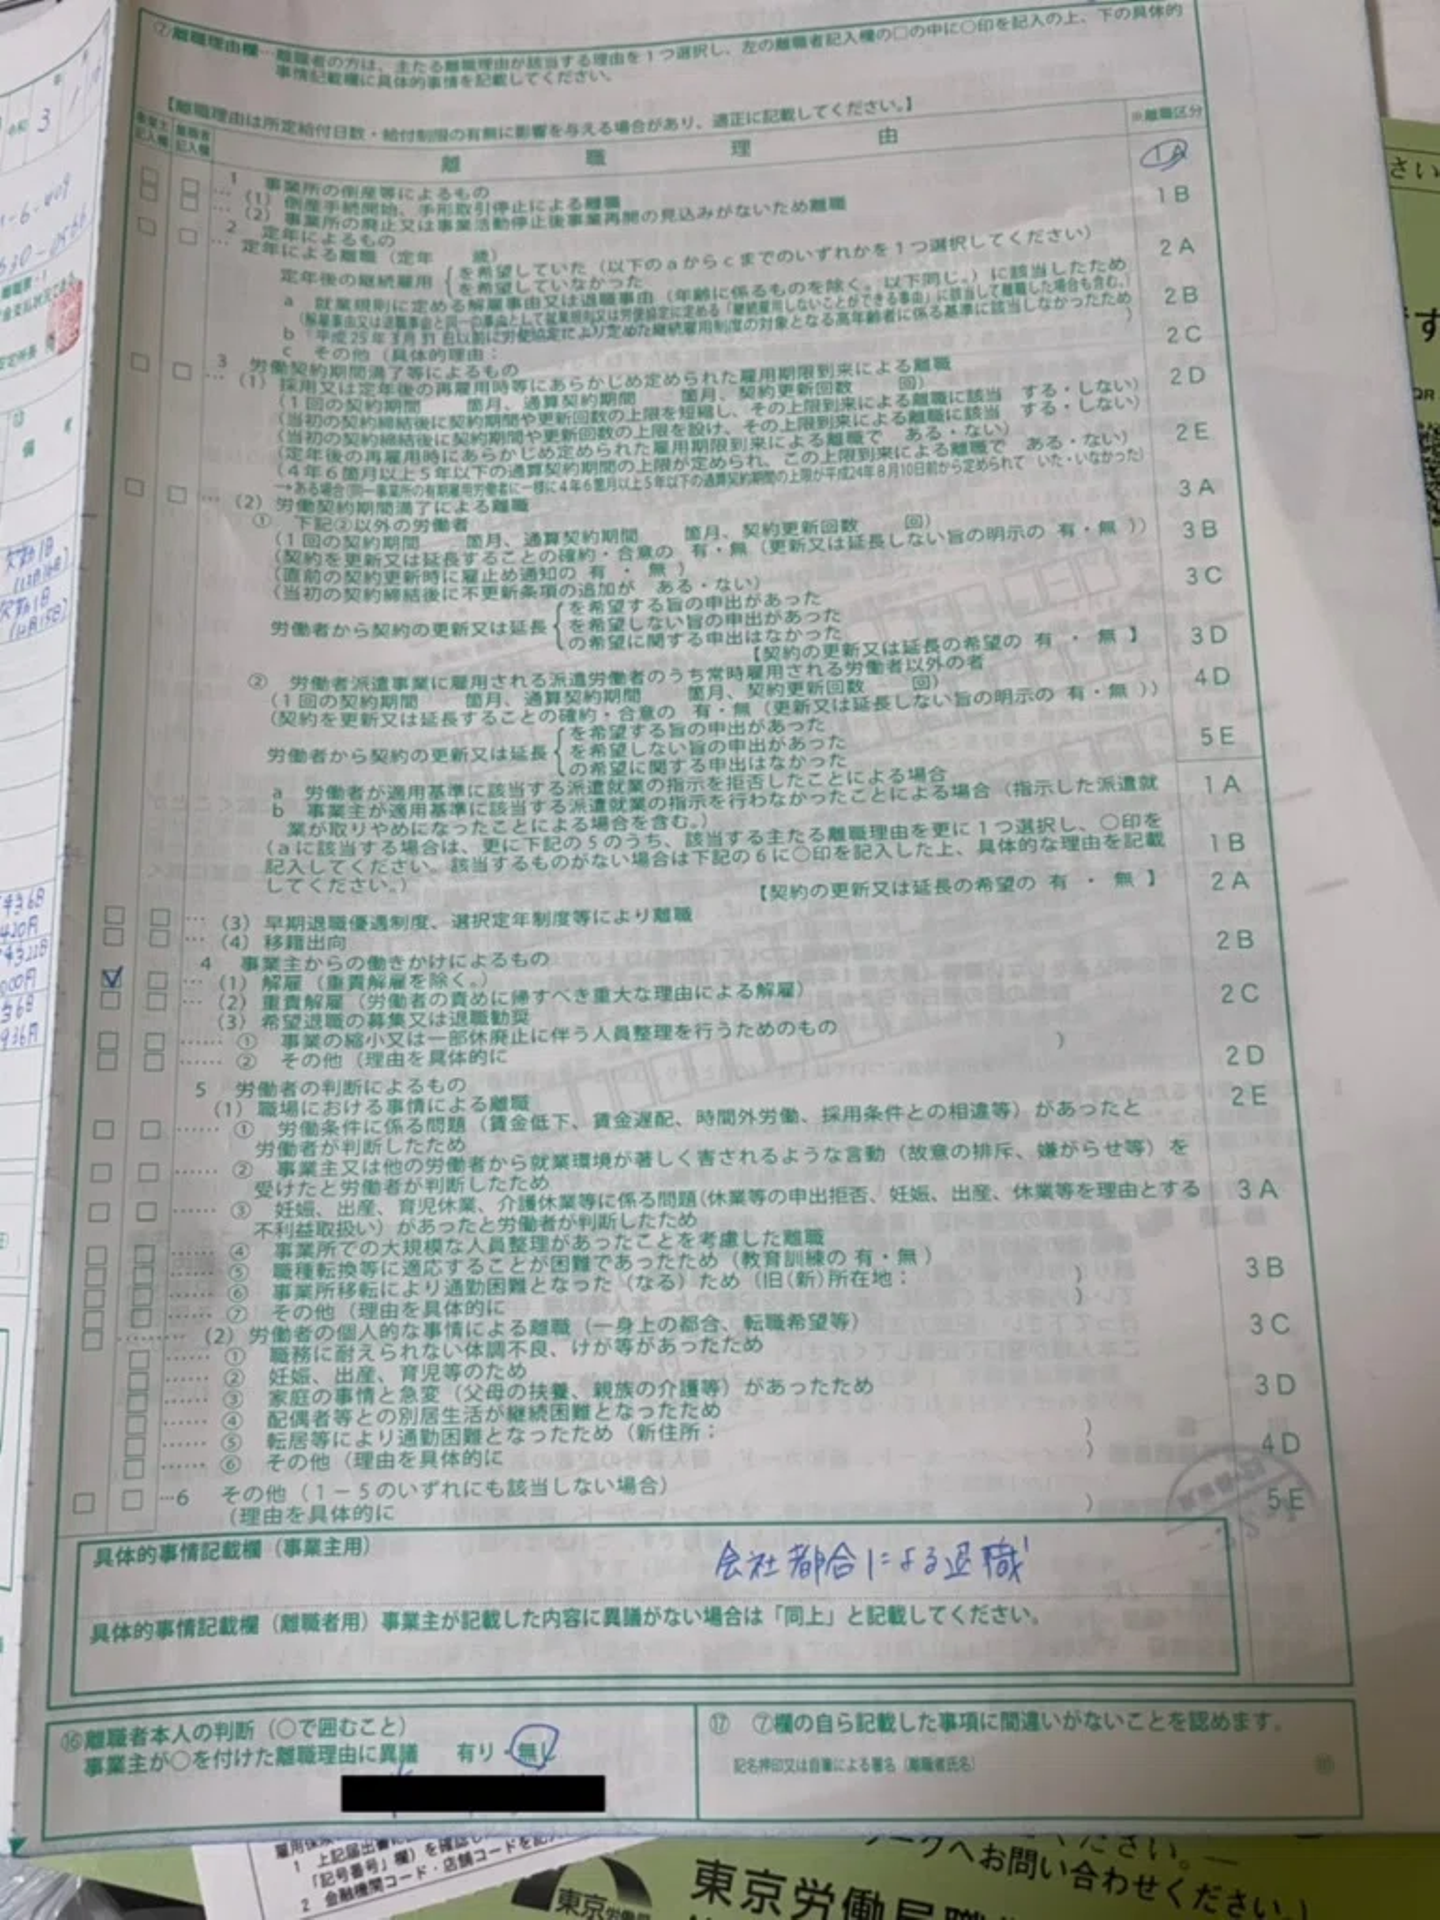 ⑦離職理由欄…離職者の方は、主たる離職理由が該当する理由を1つ選択し、左の離職者記入欄の□の中に○印を記入の上、下の具体的
事情記載欄に具体的事情を記載してください。
【離職理由は所定給付日数・給付制限の有無に影響を与える場合があり、適正に記載してください。】
事業主記入欄 離職者記入欄 離 職 理 由 ※離職区分
1A
1 事業所の倒産等によるもの
(1) 倒産手続開始、手形取引停止による離職
(2) 事業所の廃止又は事業活動停止後事業再開の見込みがないため離職
1B
2 定年によるもの
定年による離職(定年 歳)
定年後の継続雇用 を希望していた(以下のaからcまでのいずれかを1つ選択してください)
を希望していなかった
2A
a 就業規則に定める解雇事由又は退職事由(年齢に係るものを除く。以下同じ。)に該当したため
(解雇事由又は退職事由と同一の事由として就業規則又は労使協定に定める「継続雇用しないことができる事由」に該当して離職した場合も含む。)
2B
b 平成25年3月31日以前に労使協定により定めた継続雇用制度の対象となる高年齢者に係る基準に該当しなかったため
c その他(具体的理由: )
2C
3 労働契約期間満了等によるもの
(1) 採用又は定年後の再雇用時等にあらかじめ定められた雇用期限到来による離職
(1回の契約期間 箇月、通算契約期間 箇月、契約更新回数 回)
2D
(当初の契約締結後に契約期間や更新回数の上限を短縮し、その上限到来による離職に該当 する・しない)
(当初の契約締結後に契約期間や更新回数の上限を設け、その上限到来による離職に該当 する・しない)
(定年後の再雇用時にあらかじめ定められた雇用期限到来による離職で ある・ない)
2E
(4年6箇月以上5年以下の通算契約期間の上限が定められ、この上限到来による離職で ある・ない)
→ある場合(同一事業所の有期雇用労働者に一様に4年6箇月以上5年以下の通算契約期間の上限が平成24年8月10日前から定められて いた・いなかった)
3A
(2) 労働契約期間満了による離職
① 下記②以外の労働者
(1回の契約期間 箇月、通算契約期間 箇月、契約更新回数 回)
3B
(契約を更新又は延長することの確約・合意の 有・無(更新又は延長しない旨の明示の 有・無))
(直前の契約更新時に雇止め通知の 有 ・ 無 )
3C
(当初の契約締結後に不更新条項の追加が ある・ない)
労働者から契約の更新又は延長 を希望する旨の申出があった
を希望しない旨の申出があった
の希望に関する申出はなかった
【契約の更新又は延長の希望の 有 ・ 無 】
3D
② 労働者派遣事業に雇用される派遣労働者のうち常時雇用される労働者以外の者
(1回の契約期間 箇月、通算契約期間 箇月、契約更新回数 回)
4D
(契約を更新又は延長することの確約・合意の 有・無(更新又は延長しない旨の明示の 有・無))
労働者から契約の更新又は延長 を希望する旨の申出があった
を希望しない旨の申出があった
の希望に関する申出はなかった
5E
a 労働者が適用基準に該当する派遣就業の指示を拒否したことによる場合
b 事業主が適用基準に該当する派遣就業の指示を行わなかったことによる場合(指示した派遣就
業が取りやめになったことによる場合を含む。)
1A
(aに該当する場合は、更に下記の5のうち、該当する主たる離職理由を更に1つ選択し、○印を
記入してください。該当するものがない場合は下記の6に○印を記入した上、具体的な理由を記載
してください。)
1B
【契約の更新又は延長の希望の 有 ・ 無 】
2A
(3) 早期退職優遇制度、選択定年制度等により離職
(4) 移籍出向
2B
4 事業主からの働きかけによるもの
(1) 解雇(重責解雇を除く。)
(2) 重責解雇(労働者の責めに帰すべき重大な理由による解雇)
2C
(3) 希望退職の募集又は退職勧奨
① 事業の縮小又は一部休廃止に伴う人員整理を行うためのもの
② その他(理由を具体的に )
2D
5 労働者の判断によるもの
(1) 職場における事情による離職
2E
① 労働条件に係る問題(賃金低下、賃金遅配、時間外労働、採用条件との相違等)があったと
労働者が判断したため
② 事業主又は他の労働者から就業環境が著しく害されるような言動(故意の排斥、嫌がらせ等)を
受けたと労働者が判断したため
③ 妊娠、出産、育児休業、介護休業等に係る問題(休業等の申出拒否、妊娠、出産、休業等を理由とする
不利益取扱い)があったと労働者が判断したため
3A
④ 事業所での大規模な人員整理があったことを考慮した離職
⑤ 職種転換等に適応することが困難であったため(教育訓練の 有・無)
⑥ 事業所移転により通勤困難となった(なる)ため(旧(新)所在地: )
3B
⑦ その他(理由を具体的に )
(2) 労働者の個人的な事情による離職(一身上の都合、転職希望等)
3C
① 職務に耐えられない体調不良、けが等があったため
② 妊娠、出産、育児等のため
③ 家庭の事情と急変(父母の扶養、親族の介護等)があったため
3D
④ 配偶者等との別居生活が継続困難となったため
⑤ 転居等により通勤困難となったため(新住所: )
⑥ その他(理由を具体的に )
4D
…6 その他(1-5のいずれにも該当しない場合)
(理由を具体的に )
5E
具体的事情記載欄(事業主用)
会社都合による退職
具体的事情記載欄(離職者用)事業主が記載した内容に異議がない場合は「同上」と記載してください。
⑯離職者本人の判断(○で囲むこと)
事業主が○を付けた離職理由に異議 有り・無し
⑰ ⑦欄の自ら記載した事項に間違いがないことを認めます。
記名押印又は自筆による署名(離職者氏名)
令和 3
備 考
欠勤1日
欠勤1日
1 上記届出書に
「記号番号」欄)を確認し
2 金融機関コード・店舗コードを記入
ークへお問い合わせください。)
東京労働局職